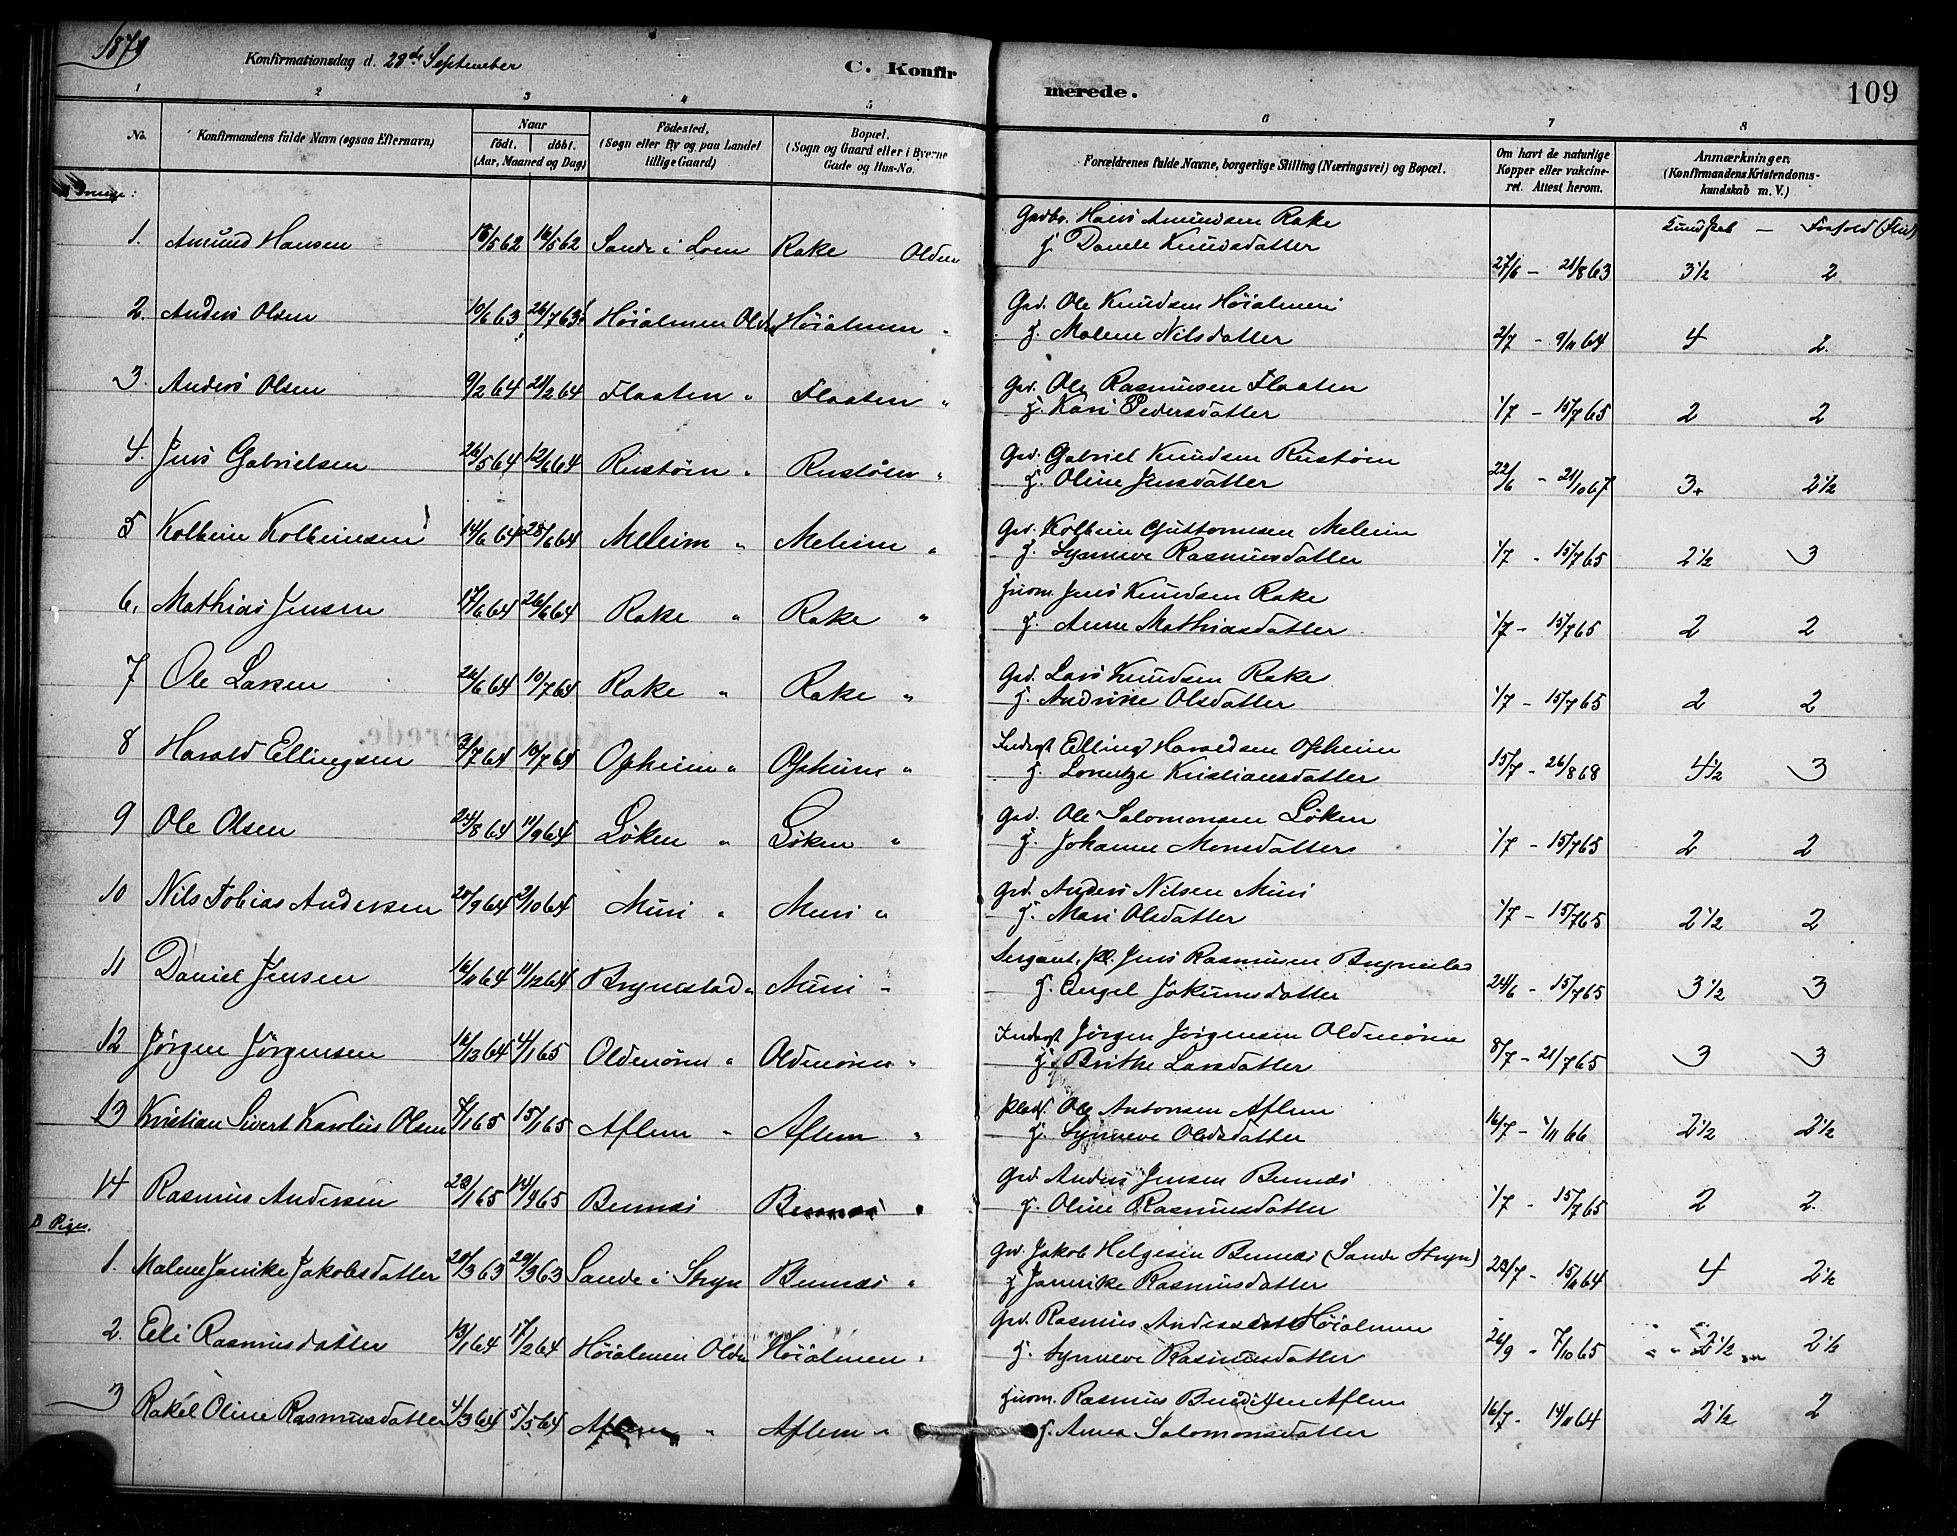 1879
Konfirmationsdag d. 28de September
C. Konfirmerede.
109
1 2 3 4 5 6 7 8
No.
Konfirmandens fulde Navn (ogsaa Efternavn)
Naar
födt. döbt.
(Aar, Maaned og Dag)
Födested,
(Sogn eller By og paa Landet
tillige Gaard)
Bopæl.
(Sogn og Gaard eller i Byerne
Gade og Hus-No.
Forældrenes fulde Navne, borgerlige Stilling (Næringsvei) og Bopæl.
Om havt de naturlige
Kopper eller vakcine-
ret. Attest herom.
Anmærkninger,
(Konfirmandens Kristendoms-
kundskab m. V.)
Drenge:
Kundskab — Forhold (Flid)
Gadbr. Hans Amundsen Rake
1. Amund Hansen 16/5 62 16/5 62 Sande i Loen Rake Olden
H. Danele Knudsdatter
27/6 - 21/8 63 3½ 2
Grd. Ole Knudsen Höialmen
2. Anders Olsen 10/6 63 26/7 63 Höialmen Olden Höialmen "
H. Malene Nilsdatter 2/7 - 9/11 64 4 2.
Grd. Ole Rasmusen Flaaten
3. Anders Olsen 9/2 64 28/2 64 Flaaten " Flaaten "
H. Kari Pedersdatter 1/7 - 15/7 65 2 2
Grd. Gabriel Knudsen Rustöen
4. Jens Gabrielsen 26/5 64 12/6 64 Rustöen " Rustöen "
H. Oline Jensdatter 22/6 - 21/10 67 3+ 2½
Grd. Kolbein Guttormsen Meleim
5 Kolbein Kolbeinsen 14/6 64 25/6 64 Meleim " Meleim "
H. Synneve Rasmusdatter 1/7 - 15/7 65 2½ 3
Huom. Jens Knudsen Rake
6. Mathias Jensen 17/6 64 26/6 64 Rake " Rake "
H. Anne Mathiasdatter 1/7 - 15/7 65 2 2
Grd. Lars Knudsen Rake
7 Ole Larsen 22/6 64 10/7 64 Rake " Rake "
H. Andrine Olsdatter 1/7 - 15/7 65 2 2
Inderst Elling Haraldsen Opheim
8 Harald Ellingsen 3/7 64 10/7 64 Opheim " Opheim "
H. Lorentze Kristiansdatter 15/7 - 26/8 68 4½ 3
Grd. Ole Salomonsen Löken
9 Ole Olsen 24/8 64 11/9 64 Löken " Löken "
H. Johanne Monsdatter 1/7 - 15/7 65 2 2
Grd. Anders Nilsen Muri
10 Nils Tobias Andersen 20/9 64 2/10 64 Muri " Muri "
H. Mari Olsdatter 1/7 - 15/7 65 2½ 2
Sergeant, Pl. Jens Rasmusen Brynestad
11 Daniel Jensen 16/11 64 11/12 64 Brynestad " Muri "
H. Engel Jokumsdatter 24/6 - 15/7 65 3½ 3
Inderst Jörgen Jörgensen Oldenören
12 Jörgen Jörgensen 16/12 64 4/1 65 Oldenören " Oldenören "
H. Brithe Larsdatter 8/7 - 21/7 65 3 3
Plads. Ole Antonsen Aflem
13 Kristian Sivert Karolius Olsen 4/1 65 15/1 65 Aflem " Aflem "
H. Synneve Olsdatter 16/7 - 1/11 66 2½ 2½
Grd. Anders Jensen Bennæs
14 Rasmus Andersen 22/1 65 14/4 65 Bennæs Bennæs "
H. Oline Rasmusdatter 1/7 - 15/7 65 2 2.
B Piger.
Grd. Jakob Helgesen Bennæs (Sande Stryn)
1. Malene Janike Jakobsdatter 20/3 63 29/3 63 Sande i Stryn Bennæs "
H. Jannike Rasmusdatter 23/7 - 15/11 64 4 2½
Grd. Rasmus Andersen Höialmen
2. Eli Rasmusdatter 13/1 64 17/2 64 Höialmen Olden Höialmen "
H. Synneve Rasmusdatter 26/9 - 7/10 65 2½ 2½
Huom. Rasmus Bendiksen Aflem
3 Rakel Oline Rasmusdatter 4/3 64 5/5 64 Aflem " Aflem "
H. Anna Salomonsdatter 16/7 - 14/11 64 2½ 2